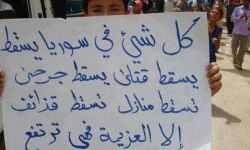 كل شيئ في سوريا يسقط
يسقط قتلى يسقط جرحى
تسقط منازل تسقط قذائف
إلا العزيمة فهي ترتفع